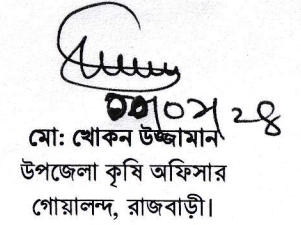 মো: খোকন উজ্জামান
উপজেলা কৃষি অফিসার
গোয়ালন্দ, রাজবাড়ী।